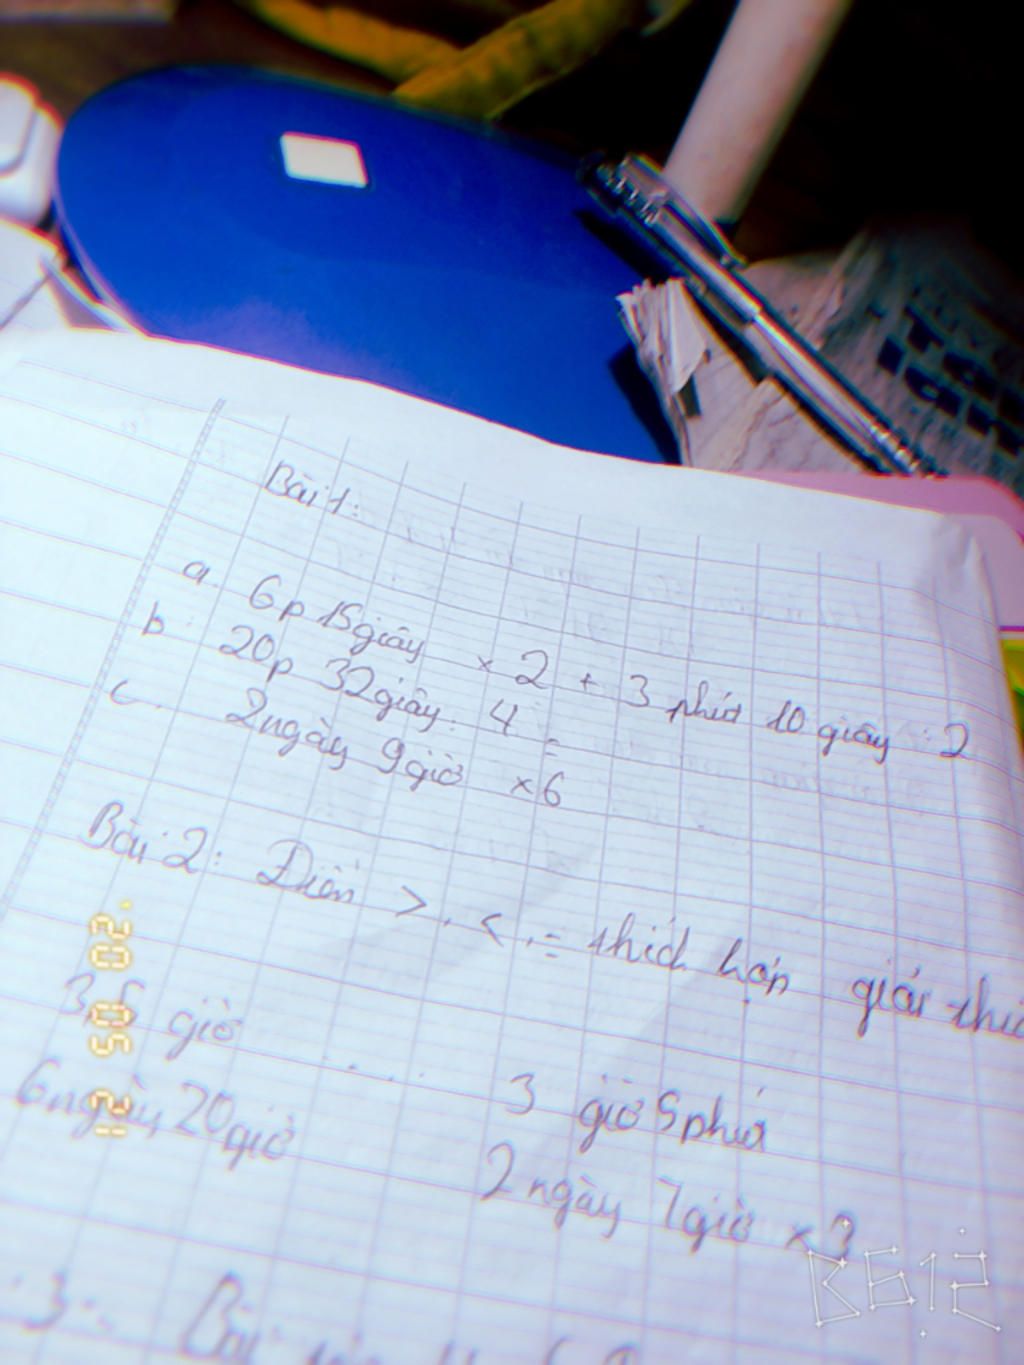 Bài 1:
a. 6p 15giây × 2 + 3 phút 10 giây : 2
b. 20p 32giây : 4 =
c. 2ngày 9giờ × 6
Bài 2: Điền >, <, = thích hợp giải thí
3,5 giờ .... 3 giờ 5phút
6ngày 20giờ 2 ngày 7giờ × 3
3: Bài
20 05 21
B612